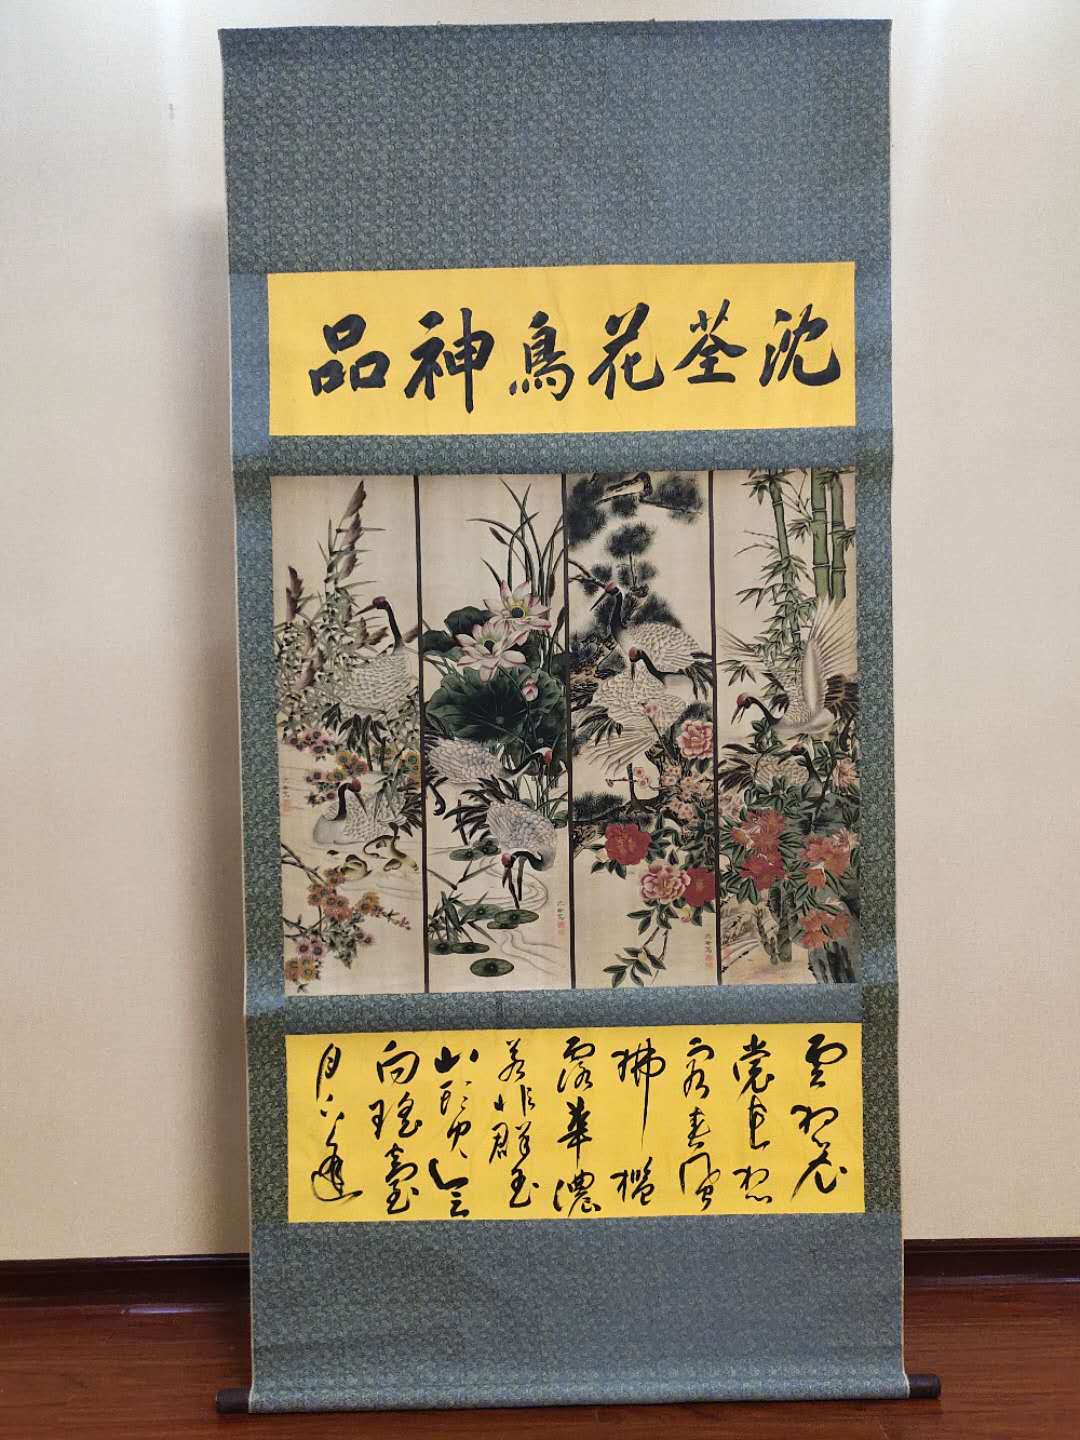 沈荃花鳥神品
雲想衣
裳花想
容春風
拂檻
露華濃
若非群玉
山頭見會
向瑤臺
月下逢